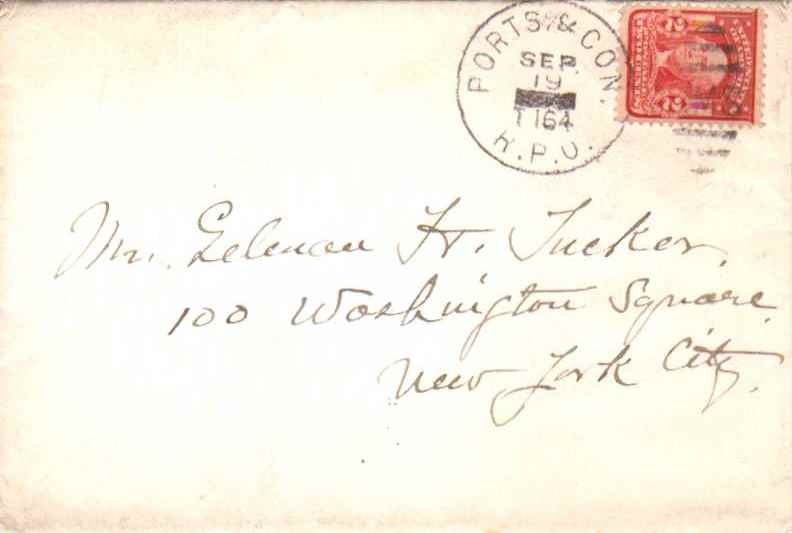 PORTS. & CON.
SEP.
19
T 164
R.P.O.
2 2
Mr. Gelman H. Tucker.
100 Washington Square.
New York City.